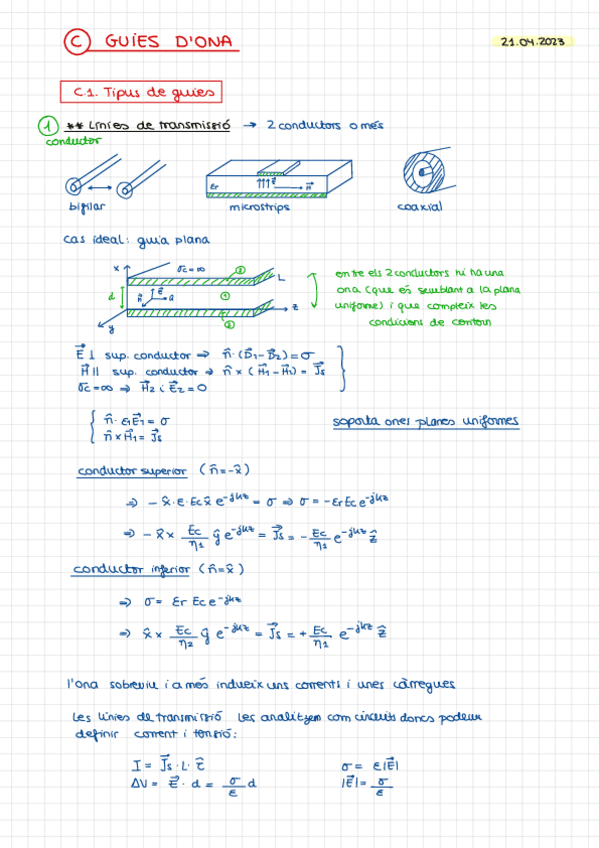 C GUIES D'ONA
21.04.2023
C.1. Tipus de guies
1 ** Línies de transmissió → 2 conductors o més
conductor
εr E H
bifilar microstrips coaxial
cas ideal: guia plana
x σc=∞ 2 L
d E H 1 z
y 2
entre els 2 conductors hi ha una
ona (que és semblant a la plana
uniforme) i que compleix les
condicions de contorn
E⃗ ⊥ sup. conductor ⇒ n̂·(D⃗1-D⃗2)=σ
H⃗ || sup. conductor ⇒ n̂×(H⃗1-H⃗2)=J⃗s
σc=∞ ⇒ H⃗2 i E⃗2=0
n̂·ε1E⃗1=σ
n̂×H⃗1=J⃗s
soporta ones planes uniformes
conductor superior (n̂=-x̂)
⇒ -x̂·ε·Ec x̂ e^-jkz = σ ⇒ σ=-εr Ec e^-jkz
⇒ -x̂× Ec/η1 ŷ e^-jkz = J⃗s = - Ec/η1 e^-jkz ẑ
conductor inferior (n̂=x̂)
⇒ σ= εr Ec e^-jkz
⇒ x̂× Ec/η2 ŷ e^-jkz = J⃗s = + Ec/η1 e^-jkz ẑ
l'ona sobreviu i a més indueix uns corrents i unes càrregues
Les línies de transmissió les analitzem com circuits doncs podem
definir corrent i tensió:
I = J⃗s·L·ẑ σ= ε|E⃗|
ΔV = E⃗·d = σ/ε d |E⃗|= σ/ε